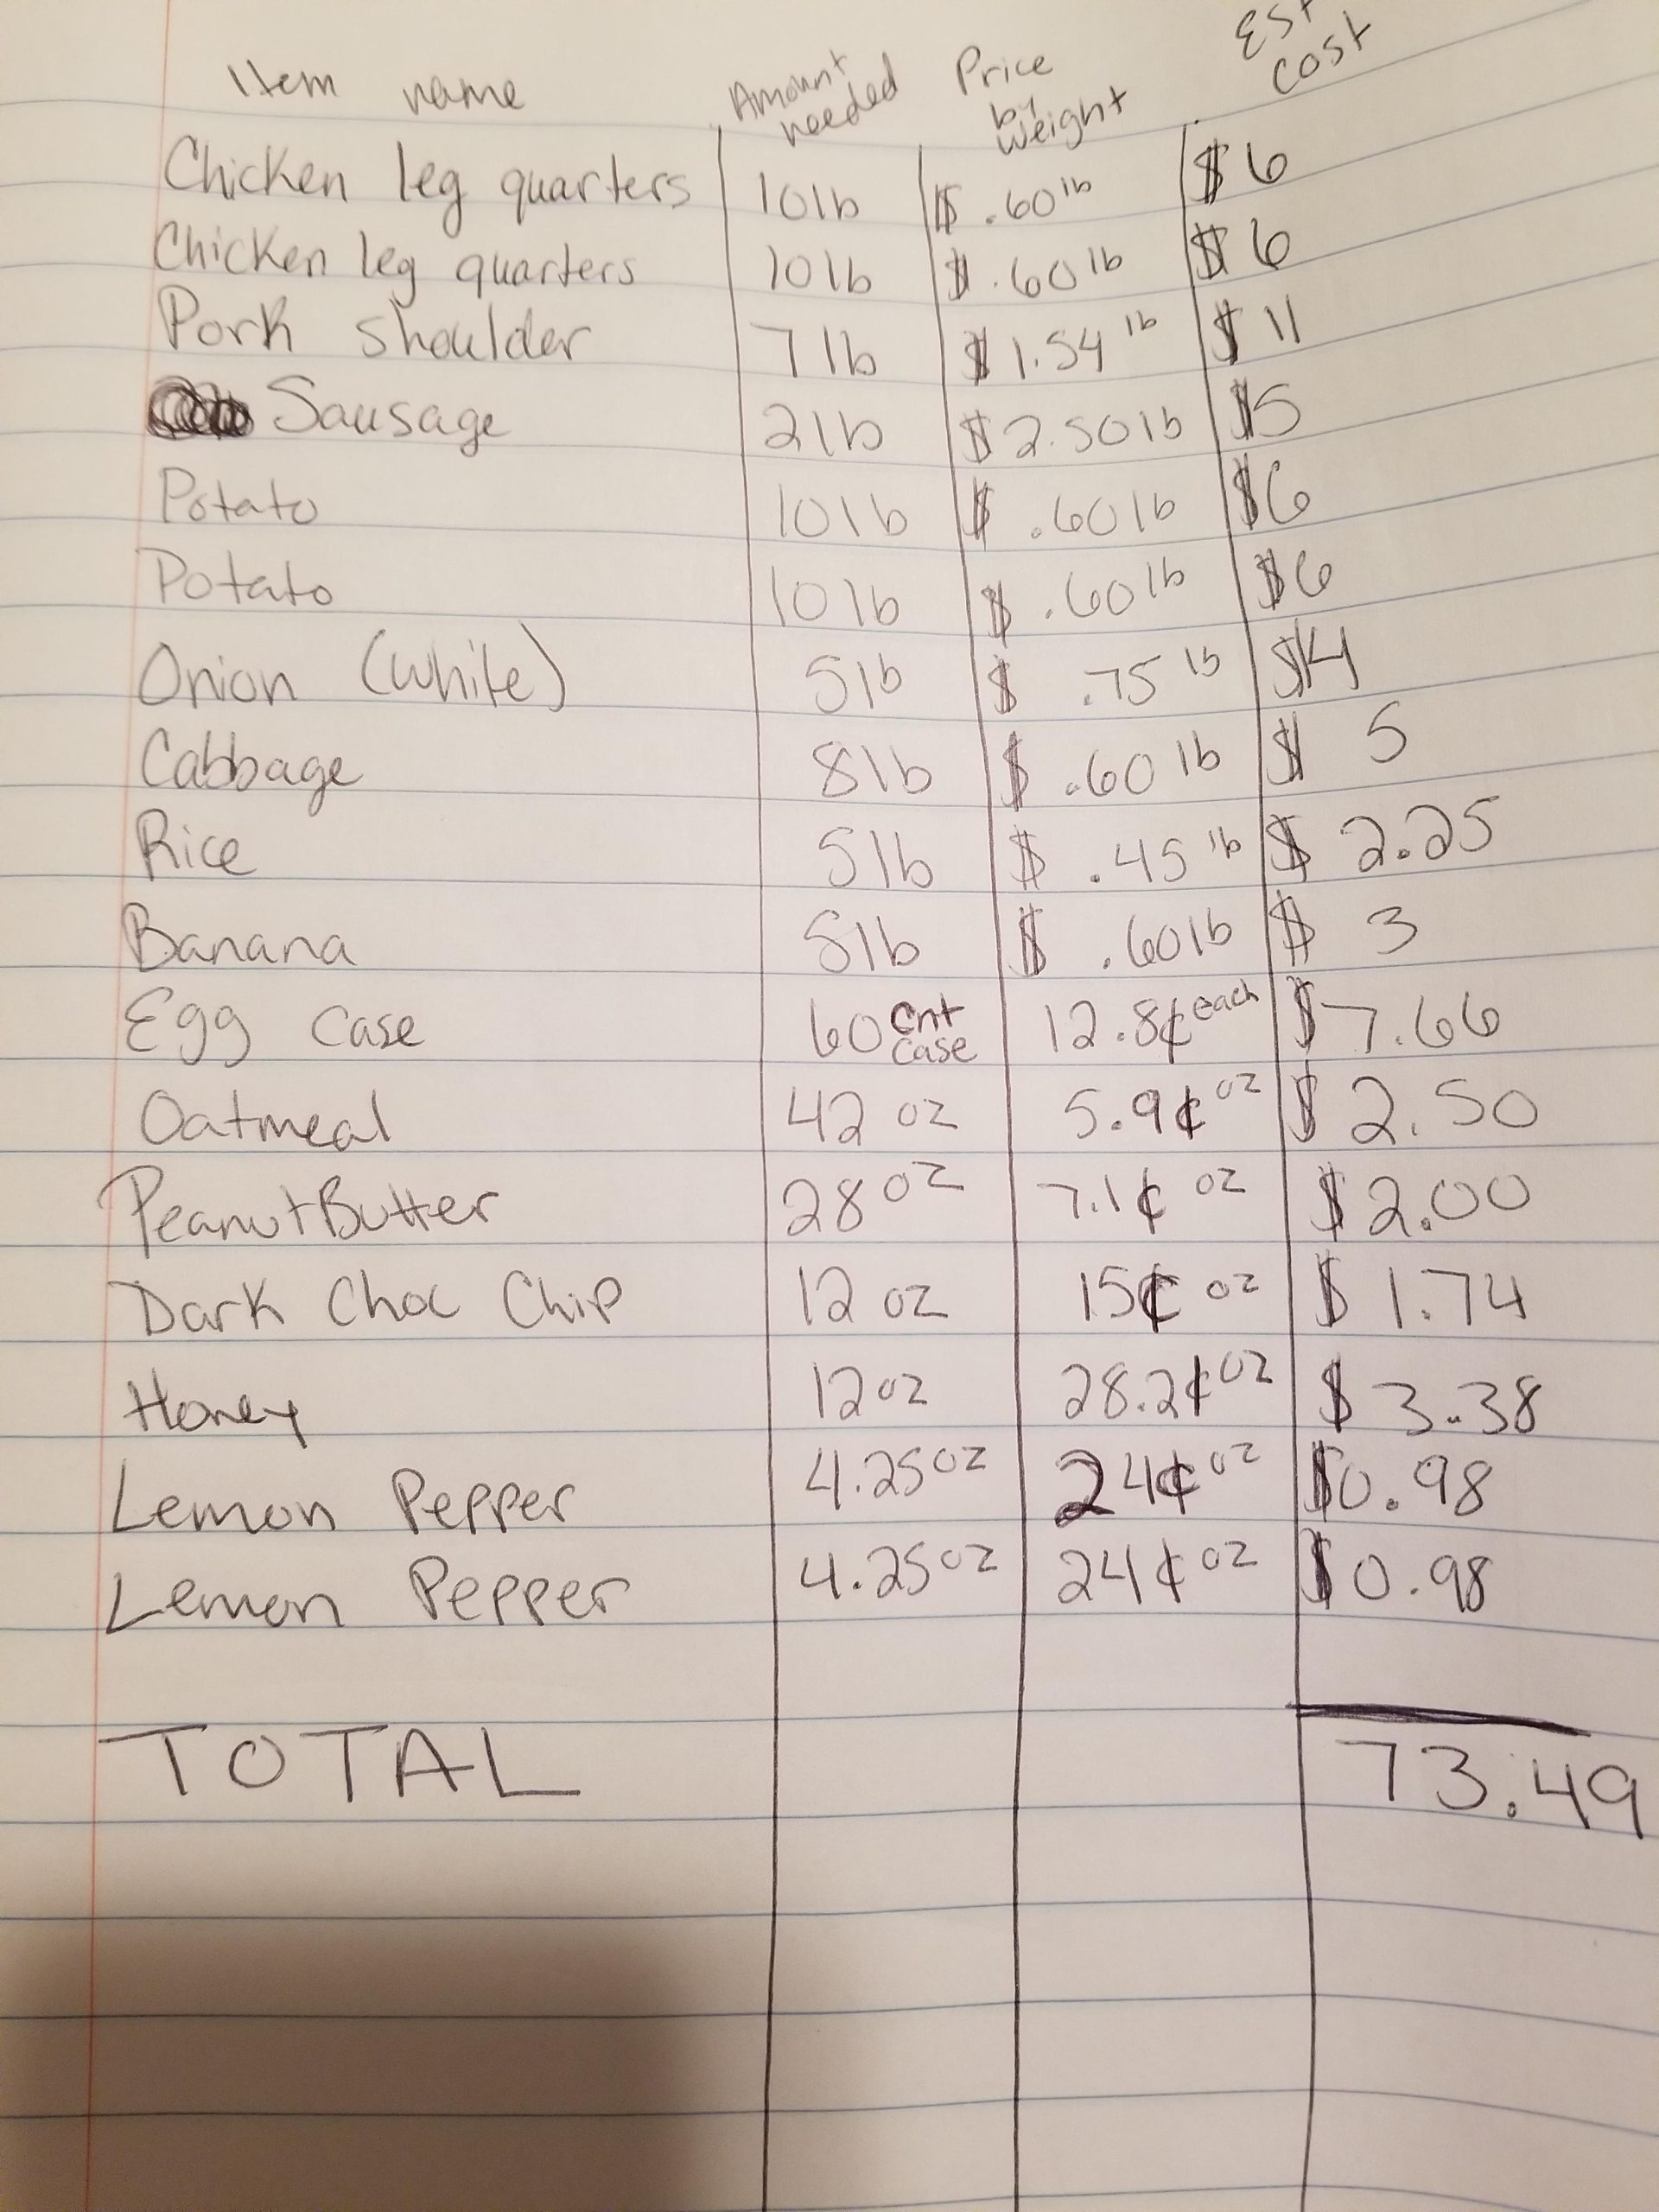 Item name Amount needed Price by weight Est cost
Chicken leg quarters 10lb $.60lb $6
Chicken leg quarters 10lb $.60lb $6
Pork shoulder 7lb $1.54lb $11
Sausage 2lb $2.50lb $5
Potato 10lb $.60lb $6
Potato 10lb $.60lb $6
Onion (white) 5lb $.75lb $4
Cabbage 8lb $.60lb $5
Rice 5lb $.45lb $2.25
Banana 5lb $.60lb $3
Egg case 60 cnt case 12.8¢ each $7.66
Oatmeal 42 oz 5.9¢ oz $2.50
Peanut Butter 28 oz 7.1¢ oz $2.00
Dark Choc Chip 12 oz 15¢ oz $1.74
Honey 12 oz 28.2¢ oz $3.38
Lemon Pepper 4.25 oz 24¢ oz $0.98
Lemon Pepper 4.25 oz 24¢ oz $0.98
TOTAL 73.49